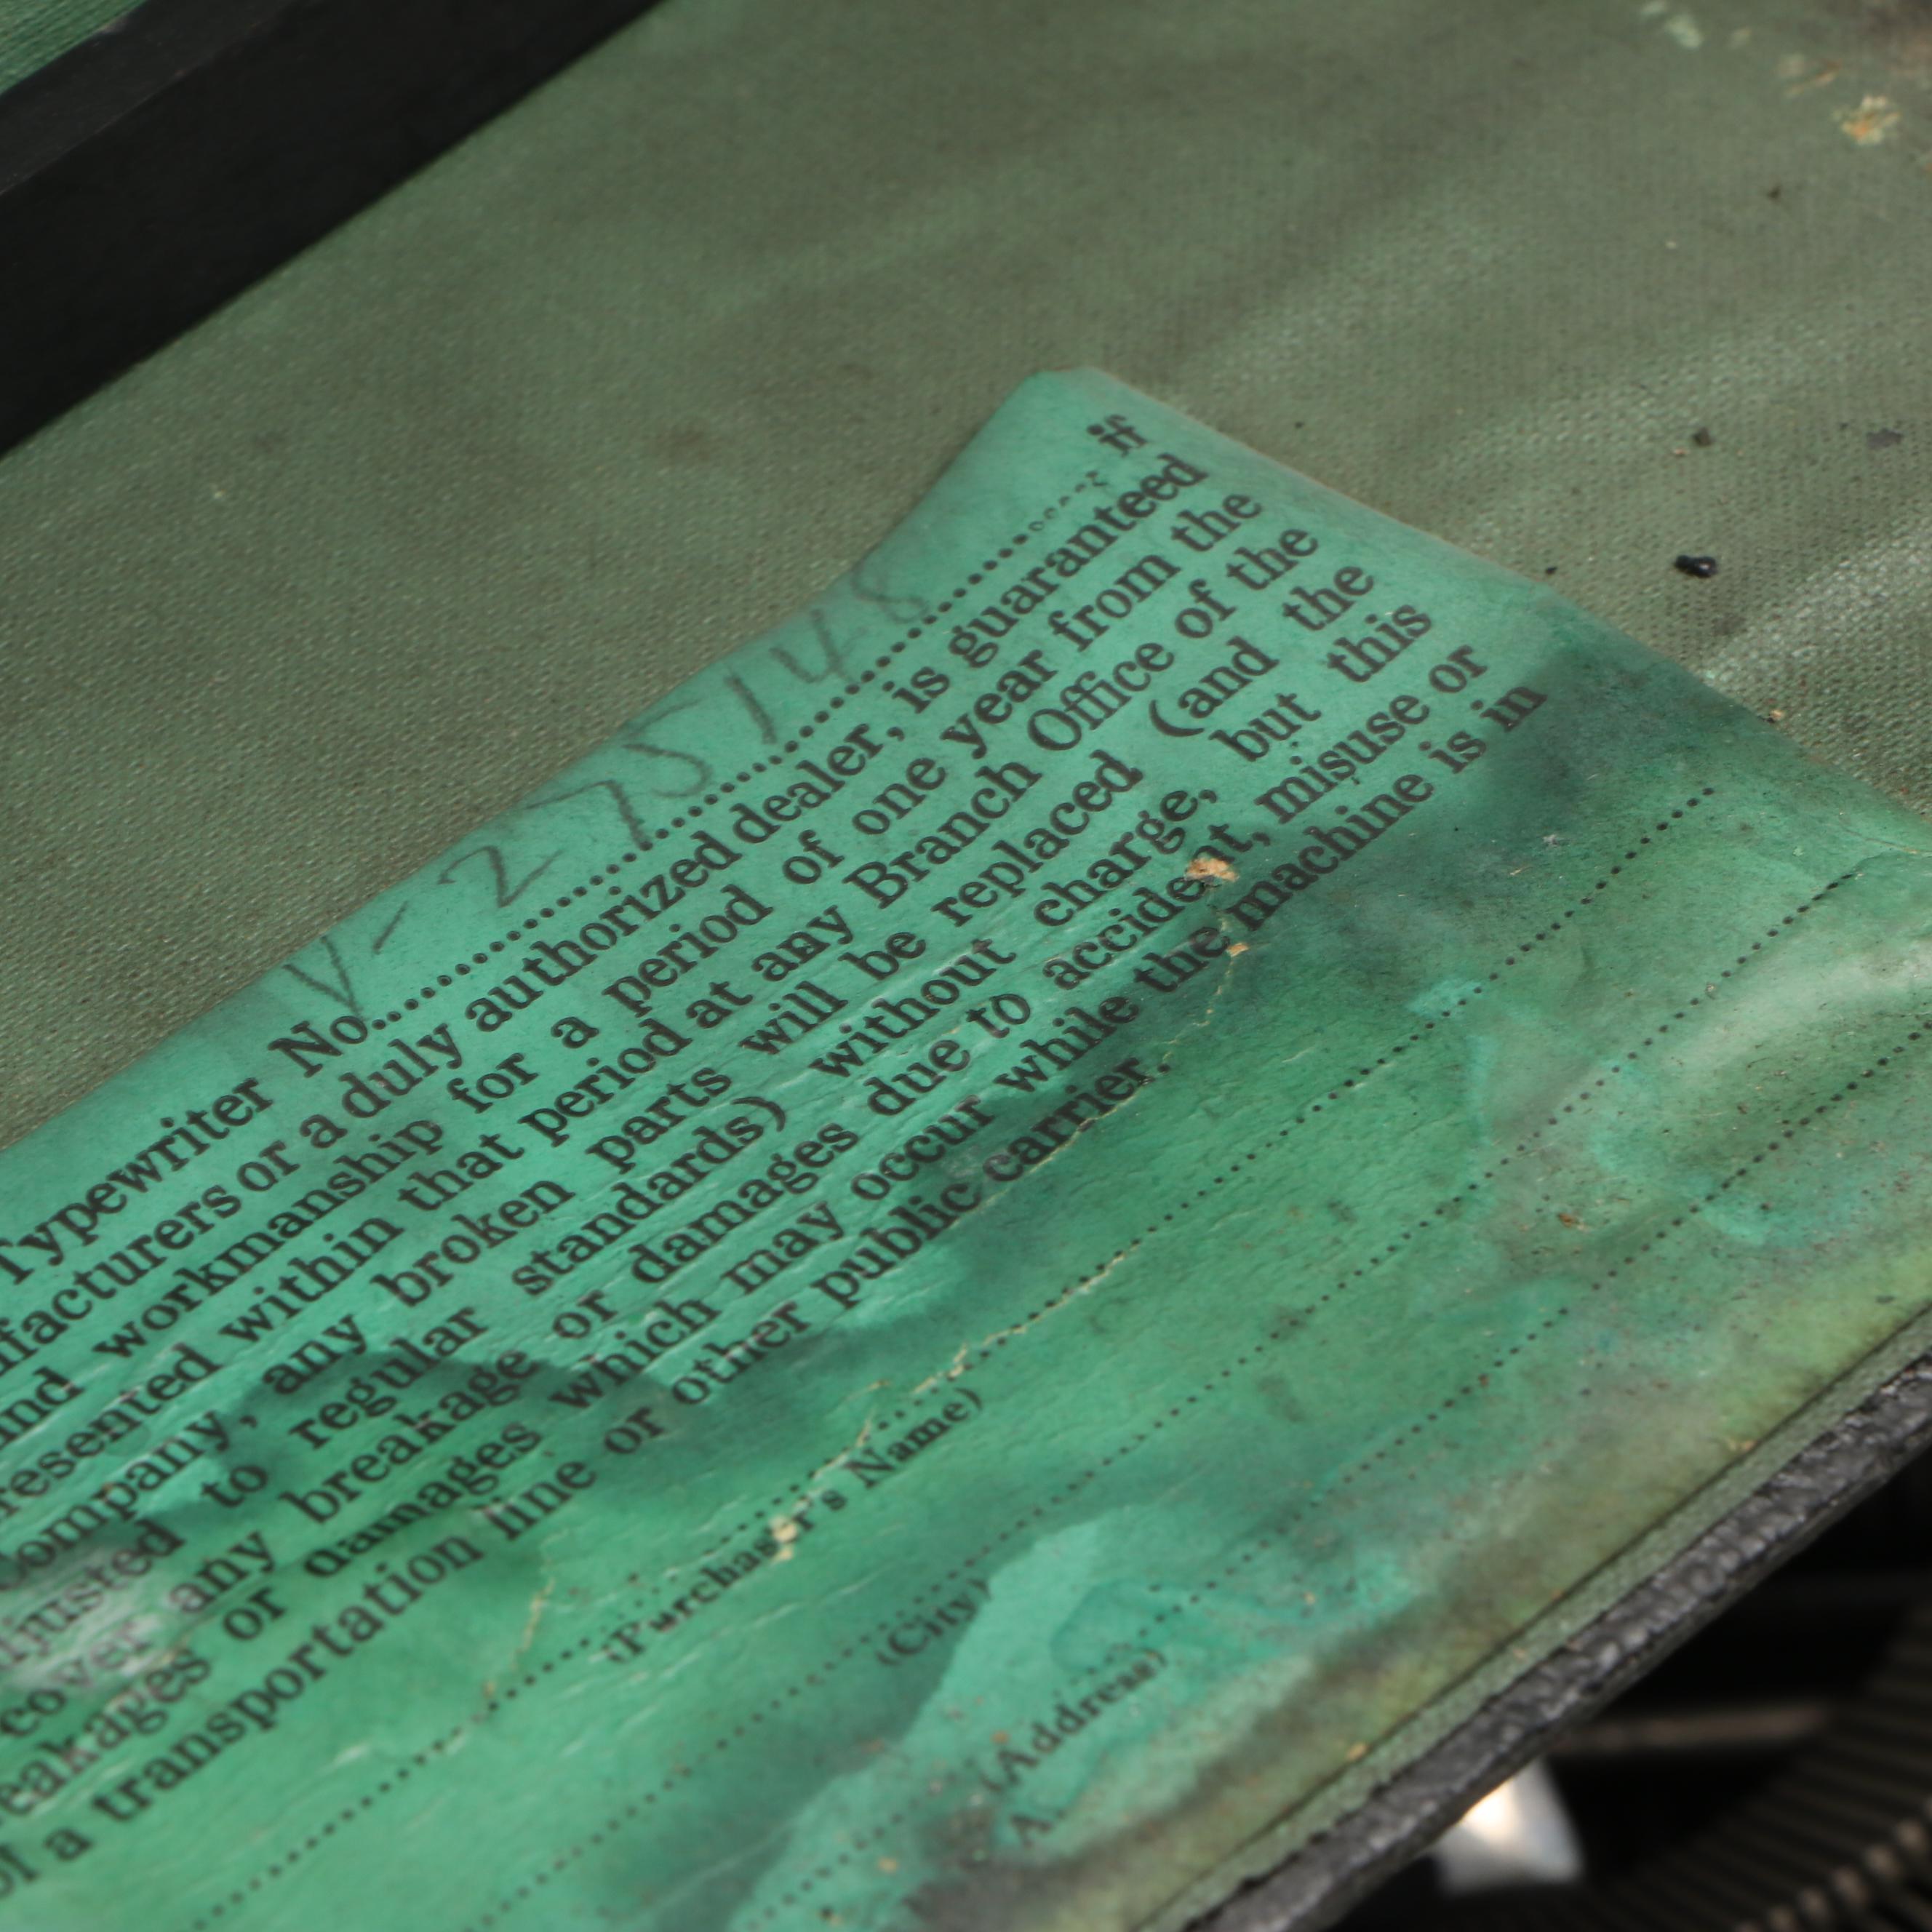 Typewriter No. V-275148 if
facturers or a duly authorized dealer, is guaranteed
and workmanship for a period of one year from the
resented within that period at any Branch Office of the
ompany, any broken parts will be replaced (and the
justed to regular standards) without charge, but this
cover any breakage or damages due to accident, misuse or
eakages or damages which may occur while the machine is in
of a transportation line or other public carrier.
(Purchaser's Name)
(City)
(Address)